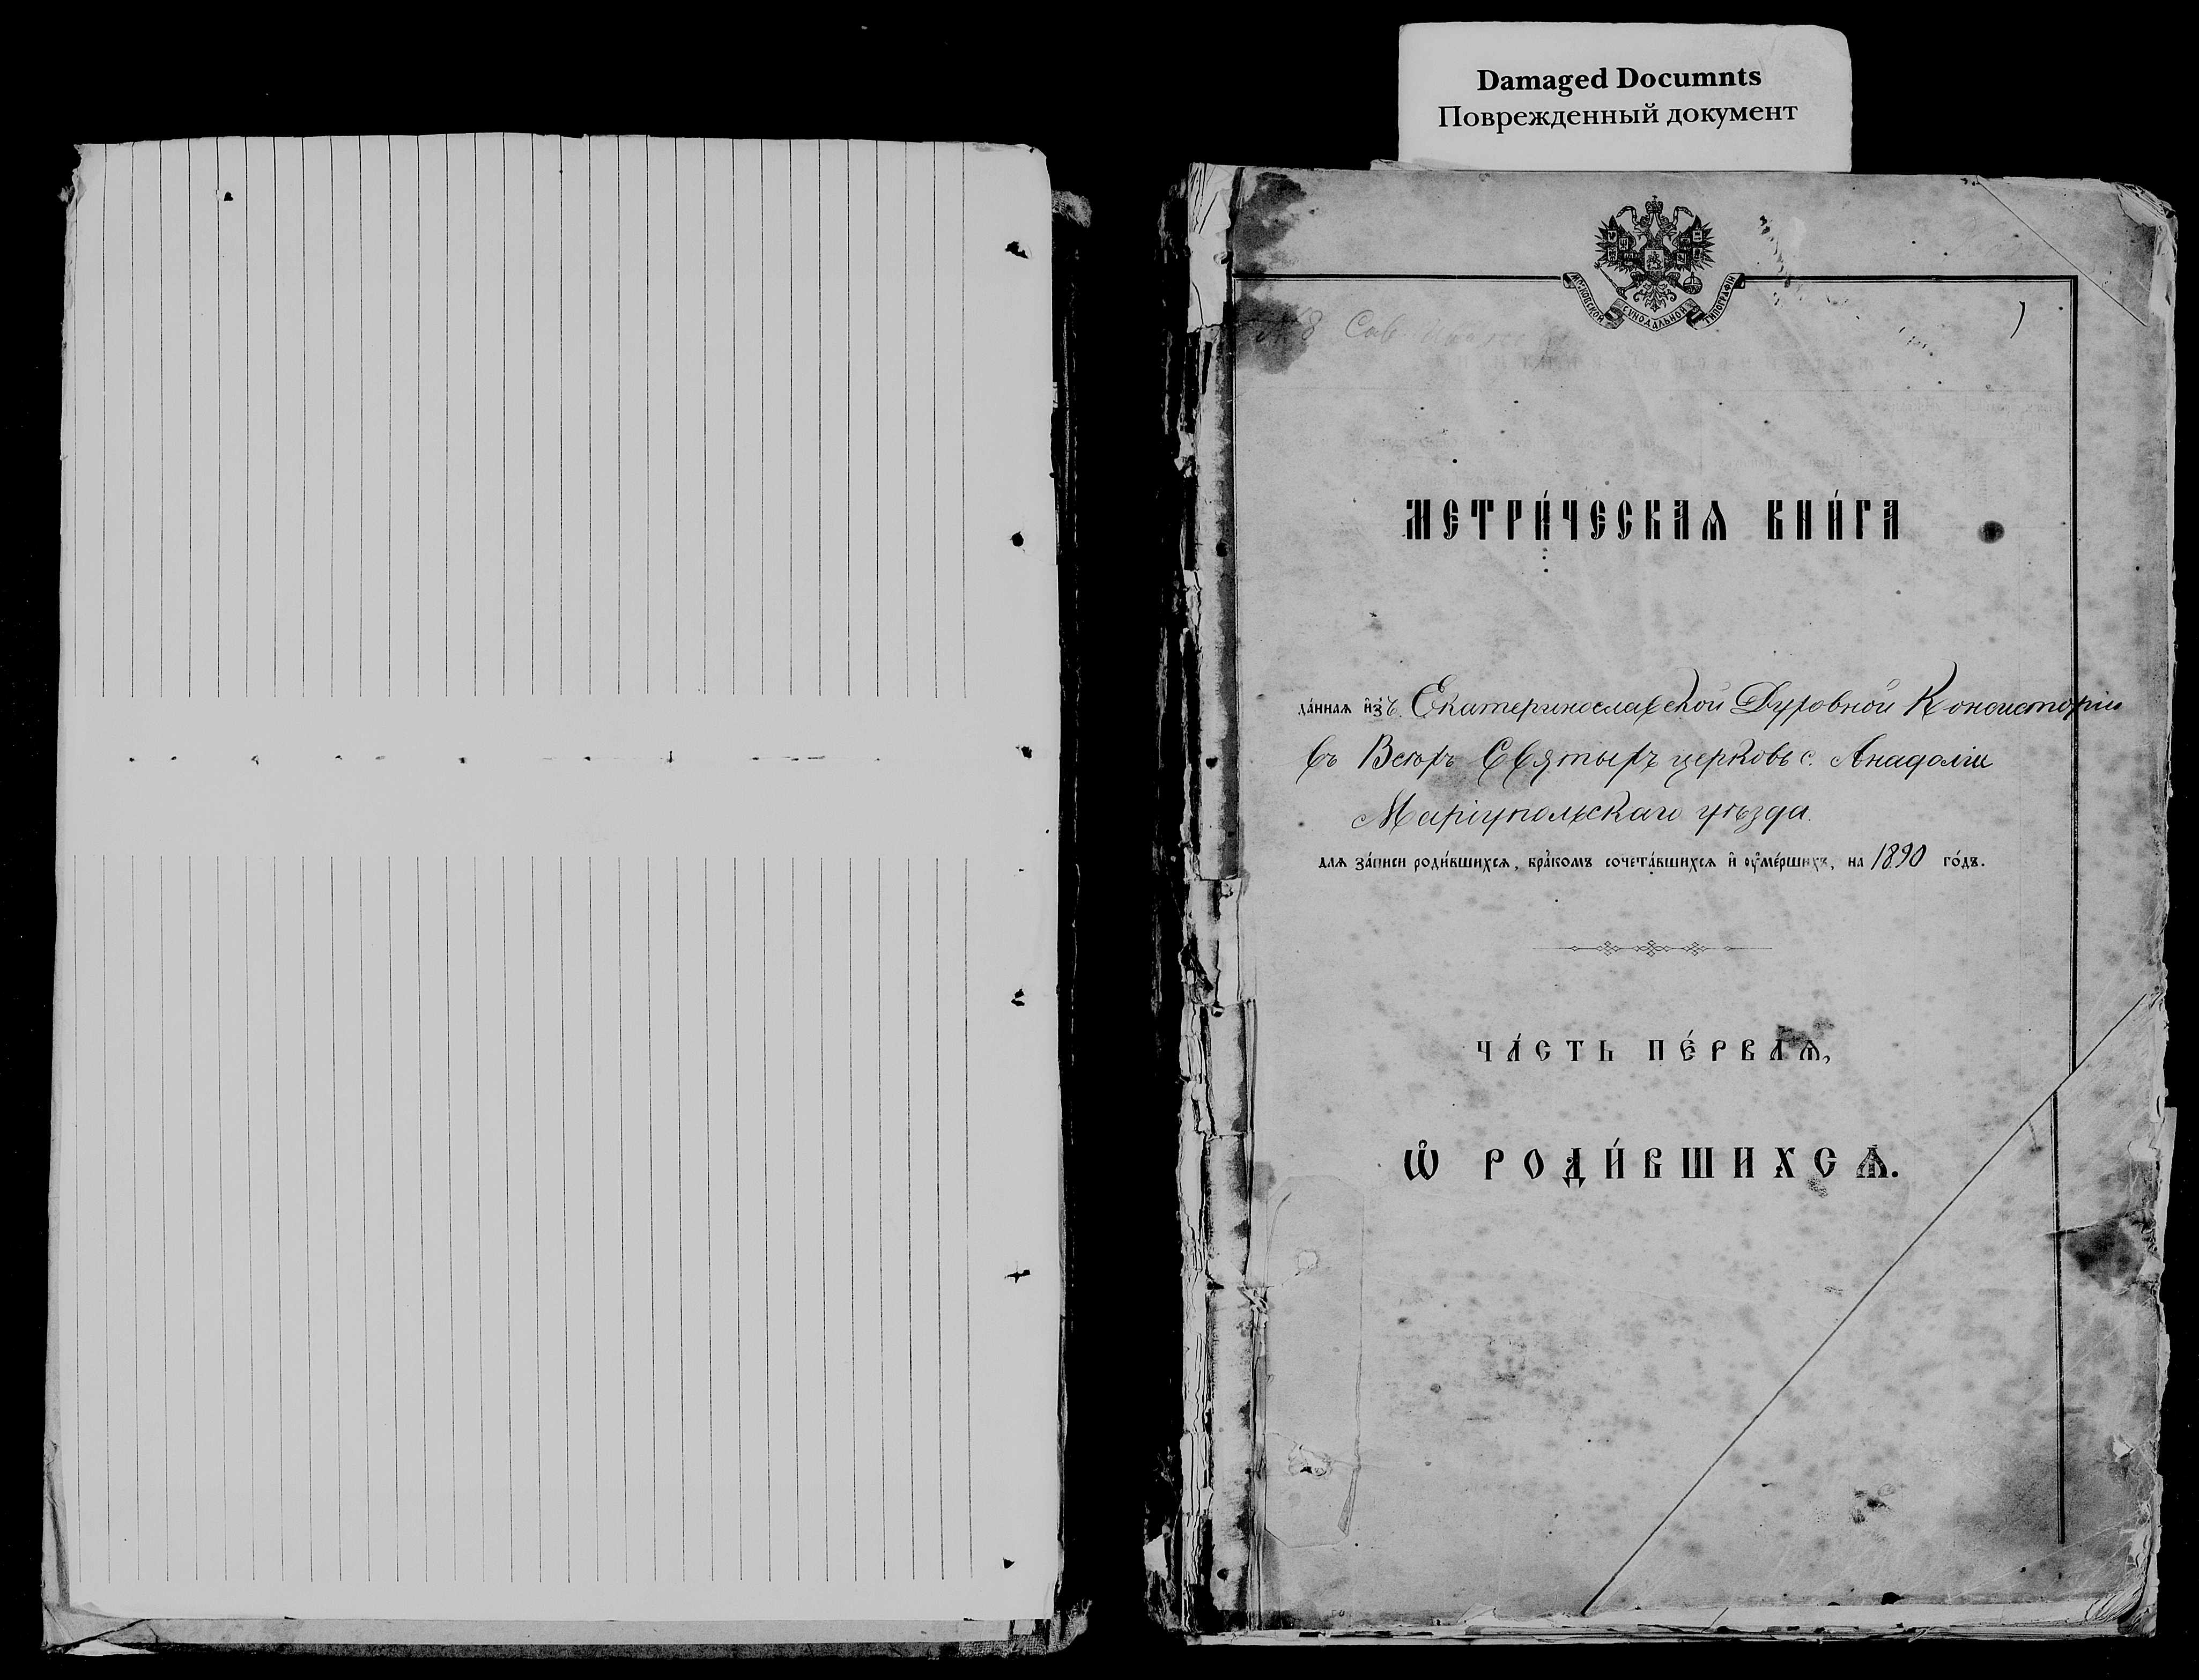 Damaged Documnts
Поврежденный документ
МОСКОВСКОЙ СѴНОДАЛЬНОЙ ТИПОГРАФІИ
МЕТРИ́ЧЕСКАѦ КНИ́ГА
да́ннаѧ и҆зъ Екатеринославской Духовной Консисторіи
въ Всѣхъ Святыхъ церковь с. Анадоліи
Маріупольскаго уѣзда.
длѧ за́писи роди́вшихсѧ, бра́комъ сочета́вшихсѧ и҆ ᲂу҆ме́ршихъ, на 1890 го́дъ.
ЧА́СТЬ ПЕ́РВАѦ,
Ѡ҆ РОДИ́ВШИХСѦ.